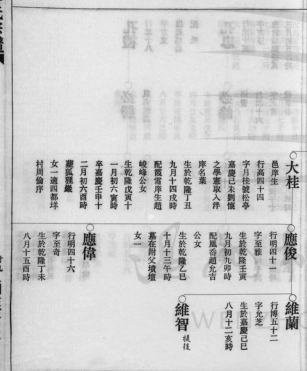 大桂
邑庠生
行高四十四
字月桂號松亭
嘉慶己未劉憲
之學憲取入泮
庠名葉
生於乾隆丁丑
九月十四戌時
配霞霄庠生趙
峻峰公女
生乾隆戊寅十
一月初六寅時
卒嘉慶壬申十
二月初六酉時
葬狐狸巖
女一適四都坪
村周倫序
應俊
行明四十一
字至雅
生於乾隆壬寅
九月初九卯時
配鳳岙趙允吉
公女
生於乾隆乙巳
十月十三午時
墓在附父墳壇
女一
應偉
行明四十六
字至奇
生於乾隆丁未
八月十五酉時
維蘭
行博五十二
字允芝
生於嘉慶己巳
八月十二亥時
維智
提後